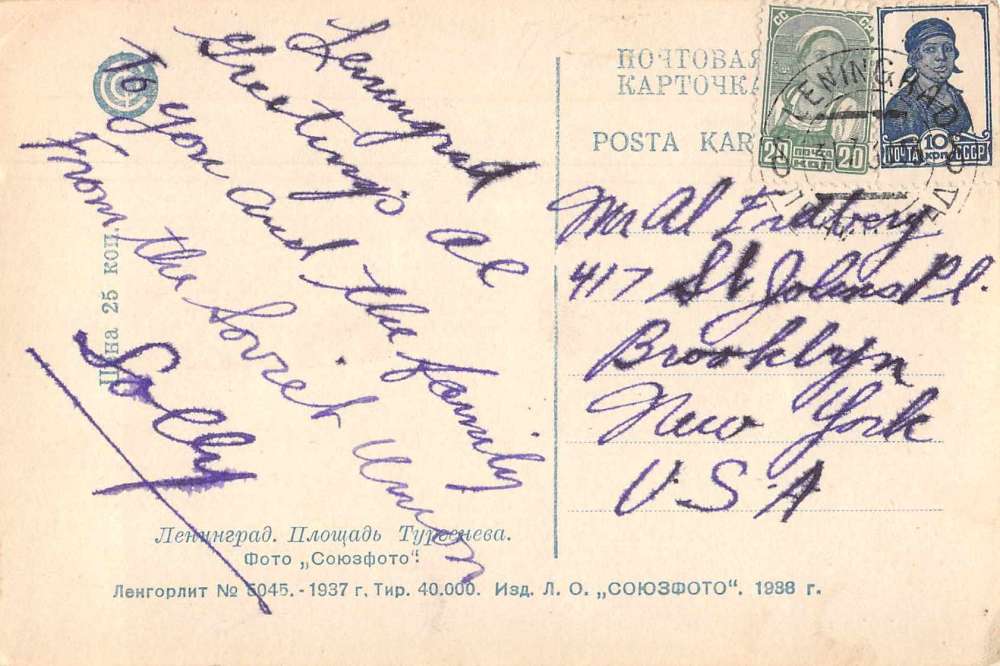 Leningrad
Greetings Al
To you and the family
From the Soviet Union
Solly
Цена 25 коп.
Ленинград. Площадь Тургенева.
Фото „Союзфото“.
Ленгорлит № 5045. - 1937 г. Тир. 40.000. Изд. Л. О. „СОЮЗФОТО“. 1938 г.
ПОЧТОВАЯ
КАРТОЧКА
POSTA KAR
20 20
КОП
10
ПОЧТА КОП. СССР
LENINGRAD
Mr Al Fridberg
417 St Johns Pl.
Brooklyn
New York
U.S.A